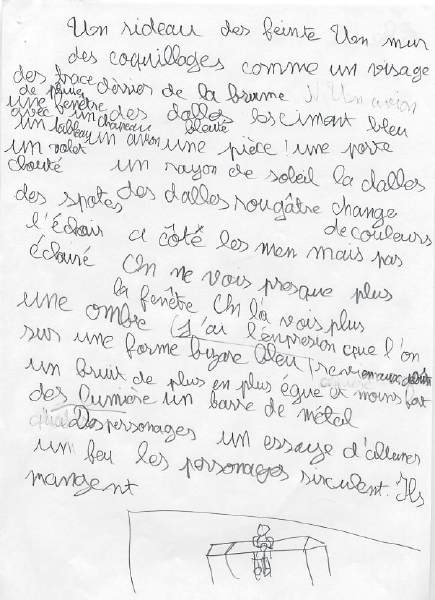 Un rideau des feinte Un mur
des coquillages comme un visage
des trace dèrrier de la brume Un avion
de pluie
une fenêtre des dalles les ciment bleu
avec un chapeau bleuté
un tableau un avion une pièce ! une porte
un volet
clouté un rayon de soleil la dalles
des spotes des dalles rougâtre change
de couleurs
l'éclair a côté les men mais pas
éclairé On ne vois presque plus
la fenêtre On la vois plus
une ombre (J'ai l'énpresion que l'on
sur une forme bizare bleu
un bruit de plus en plus égue et moins fort
des lumière un barre de métal
Des personages un essaye d'allumer
un feu les personages sirculent. Ils
mangent